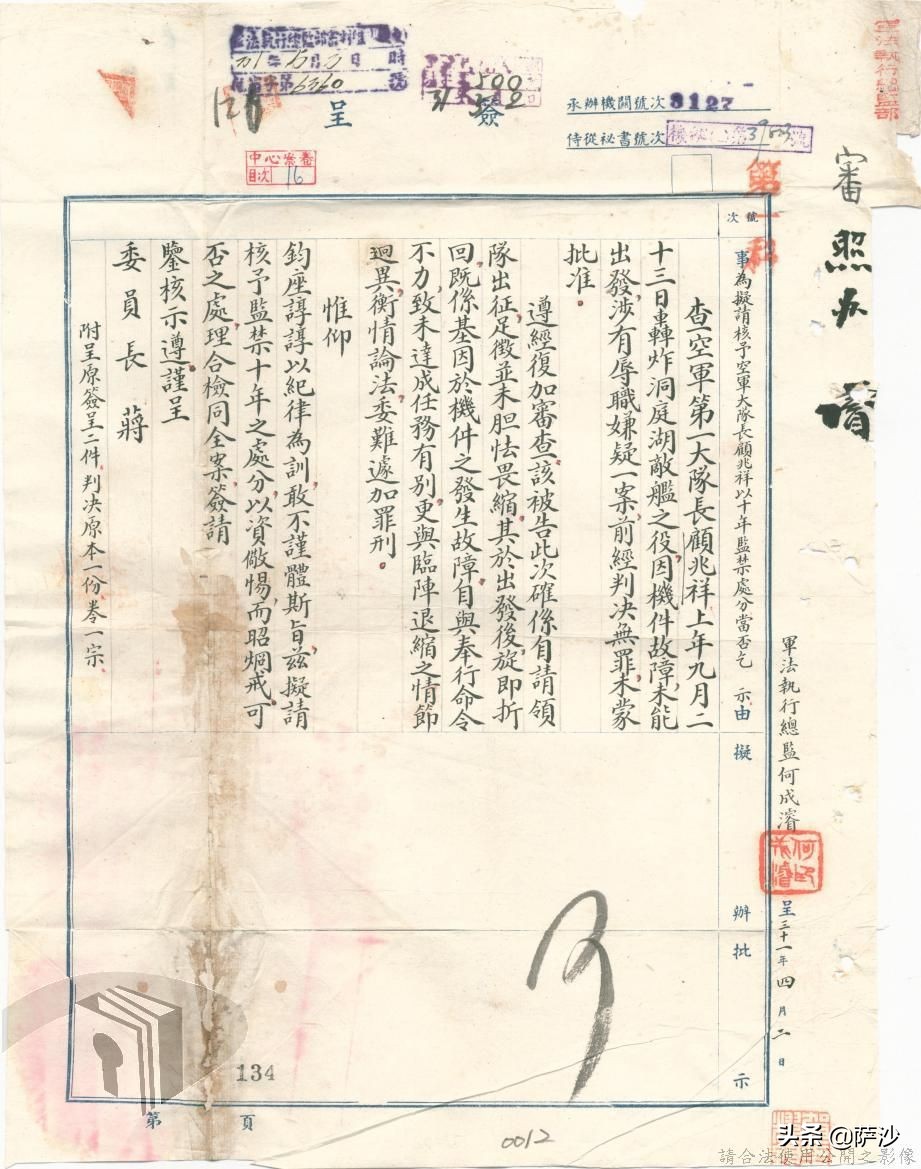 軍法執行總監部
審
照办
承辦機關號次 3127
侍從祕書號次
簽
呈
中心案卷
目次 16
第一科
號次
事由
為擬請核予空軍大隊長顧兆祥以十年監禁處分當否乞 示
擬辦
批示
查空軍第一大隊長顧兆祥上年九月二
十三日轟炸洞庭湖敵艦之役因機件故障未能
出發涉有辱職嫌疑一案前經判決無罪未蒙
批准。
遵經復加審查該被告此次確係自請領
隊出征足徵並未胆怯畏縮其於出發後旋即折
回既係基因於機件之發生故障自與奉行命令
不力致未達成任務有別更與臨陣退縮之情節
迥異衡情論法委難遽加罪刑。
惟仰
鈞座諄諄以紀律為訓敢不謹體斯旨茲擬請
核予監禁十年之處分以資儆惕而昭烱戒可
否之處理合檢同全案簽請
鑒核示遵謹呈
委員長 蔣
附呈原簽呈二件判決原本一份卷一宗
軍法執行總監何成濬
呈 三十一年四月二日
134
第 頁
0012
头条 @萨沙
請合法使用公開之影像